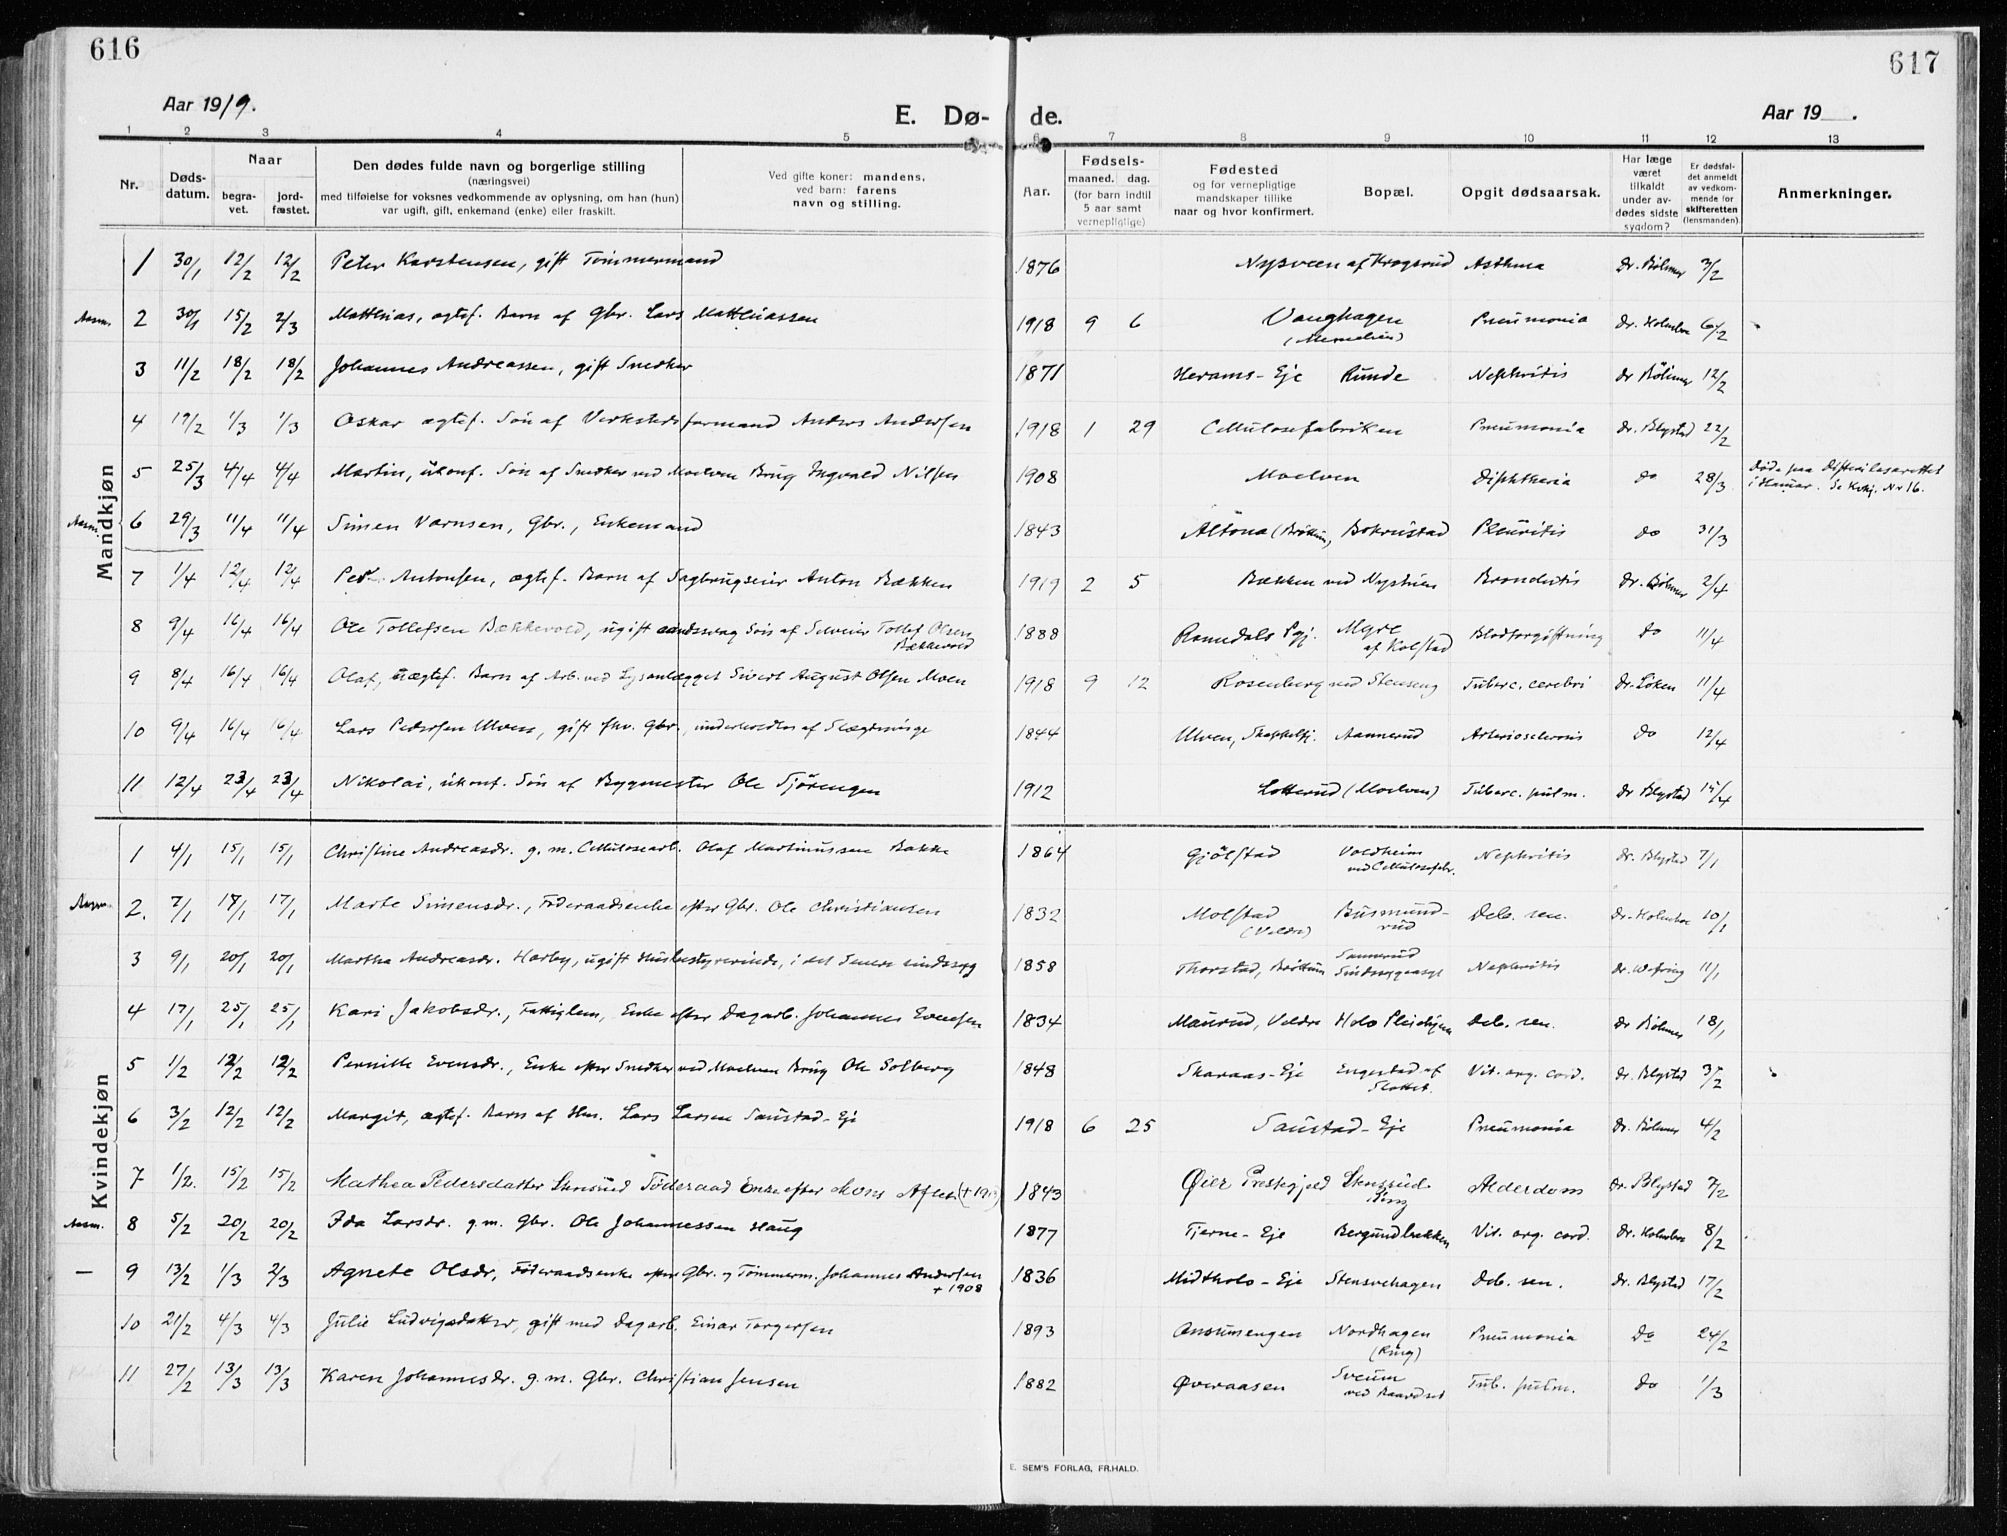 616
617
Aar 1919.
E. Dø-
de.
Aar 19 .
1 2 3 4 5 6 7 8 9 10 11 12 13
Nr.
Døds-
datum.
Naar
begra-
vet.
jord-
fæstet.
Den dødes fulde navn og borgerlige stilling
(næringsvei)
med tilføielse for voksnes vedkommende av oplysning, om han (hun)
var ugift, gift, enkemand (enke) eller fraskilt.
Ved gifte koner: mandens,
ved barn: farens
navn og stilling.
Aar.
Fødsels-
maaned. dag.
(for barn indtil
5 aar samt
vernepligtige)
Fødested
og for vernepligtige
mandskaper tillike
naar og hvor konfirmert.
Bopæl.
Opgit dødsaarsak.
Har læge
været
tilkaldt
under av-
dødes sidste
sygdom?
Er dødsfal-
det anmeldt
av vedkom-
mende for
skifteretten
(lensmanden).
Anmerkninger.
Mandkjøn
1 30/1 12/2 12/2 Peter Karstensen, gift Tømmermand 1876 Nysveen af Krogsrud Asthma Dr. Bølmer 3/2
2 30/1 15/2 2/3 Matthias, ægtef. Barn af Gbr. Lars Matthiassen 1918 9 6 Vanghagen Pneumonia Dr. Holmboe 6/2
3 11/2 18/2 18/2 Johannes Andreassen, gift Snedker 1871 Herams-Eje Runde Nephritis Dr Bölmer 12/2
4 19/2 1/3 1/3 Oskar ægtef. Søn af Verkstedsformand Anders Andersen 1918 1 29 Cellulosefabriken Pneumonia Dr. Blystad 22/2
5 25/3 4/4 4/4 Martin, ukonf. Søn af Snedker ved Moelven Brug Ingvald Nilsen 1908 Moelven Diphtheria do 28/3 Døde paa Difterilasarettet
i Hamar. Se Kvkj. Nr 16.
6 29/3 11/4 11/4 Simen Varnsen, Gbr., Enkemand 1843 Altona (Brøttum) Bokrustad Pleuritis do 31/3
7 1/4 12/4 12/4 Peter Antonsen, ægtef. Barn af Sagbrugseier Anton Bækken 1919 2 5 Bækken ved Nystuen Bronchitis Dr. Bölmer 2/4
8 9/4 16/4 16/4 Ole Tollefsen Bækkevold, ugift aandssvag Søn af Selveier Tollef Olsen
Bækkevold 1888 Romedals Pgj. Myre
af Kolstad Blodforgiftning do 11/4
9 8/4 16/4 16/4 Olaf, uægtef. Barn af Arb. ved Lysanlægget Sivert August Olsen Moen 1918 9 12 Rosenberg ved Stenseng Tuberc. cerebri Dr. Løken 11/4
10 9/4 16/4 16/4 Lars Pedersen Ulven, gift fhv. Gbr., underholdtes af Slægtninge 1844 Ulven, Aannerud Arteriosclerosis do 12/4
11 12/4 23/4 23/4 Nikolai, ukonf. Søn af Bygmester Ole Tjørengen 1912 Lotterud (Moelven) Tuberc. pulm. Dr Blystad 15/4
Kvindekjøn
1 4/1 15/1 15/1 Christine Andreasdr. g. m. Cellulosearb. Olaf Martinussen Bakke 1864 Gjölstad Voldheim
ved Cellulosefabr. Nephritis Dr. Blystad 7/1
2. 7/1 17/1 17/1 Marte Simensdr., Føderaadsenke efter Gbr. Ole Christiansen 1832 Molstad
(Veldre) Busmund-
rud Deb. sen. Dr. Holmboe 10/1
3 9/1 20/1 20/1 Martha Andreasdr. Horby, ugift Husbestyrerinde, i det Senere sindssyg 1858 Thorstad, Brøttum Sannerud
Sindssygeasyl Nephritis Dr. Wefring 11/1
4 17/1 25/1 25/1 Kari Jakobsdr., Fattiglem, Enke efter Dagarb. Johannes Evensen 1834 Maurud, Veldre Holo Pleiehjem Deb. sen. Dr Bölmer 18/1
5 1/2 12/2 12/2 Pernille Evensdr., Enke efter Snedker ved Moelven Brug Ole Solberg 1848 Skaraas-Eje Engestad af
Slottet. Vit. org. cord. Dr. Blystad 3/2
6 3/2 12/2 12/2 Margit, ægtef. Barn af Hm. Lars Larsen Saustad-Eje 1918 6 25 Saustad-Eje Pneumonia Dr. Bölmer 4/2
7 1/2. 15/2 15/2 Mathea Pedersdatter Stensrud Føderaad Enke efter Mons 1843 Øier Prestegjeld Stensrud
Ring Alderdom Dr. Blystad 7/2
8 5/2 20/2 20/2 Ida Larsdr. g. m. Gbr. Ole Johannessen Haug 1877 Tjerne-Eje Bergundbakken Vit. org. cord. Dr. Holmboe 8/2
— 9 13/2 1/3 2/3 Agnete Olsdr, Föderaadsenke efter Gbr. og Tömmerm. Johannes Andersen
+ 1908 1836 Midtholo-Eje Stensvehagen Deb. sen. Dr. Blystad 17/2
10 21/2 4/3 4/3 Julie Ludvigsdatter, gift med Dagarb. Einar Torgersen 1893 Ansumengen Nordhagen
(Ring) Pneumonia Do 24/2
11 27/2 13/3 13/3 Karen Johannesdr. g. m. Gbr. Christian Jensen 1882 Øveraasen Sveum
ved Baardset Tub. pulm. Do 1/3
E. SEM'S FORLAG, FR.HALD.